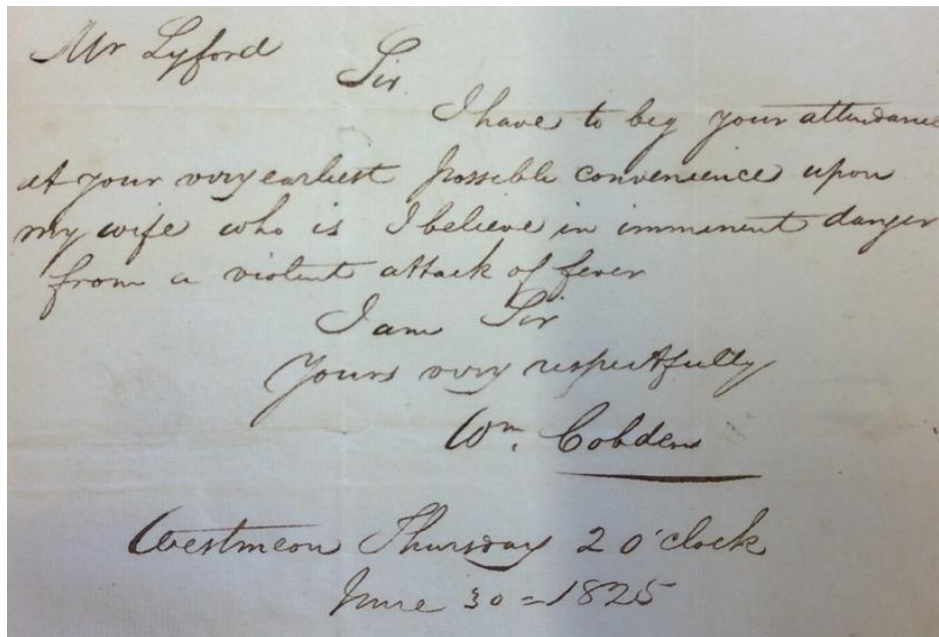 Mr Lyford
Sir
I have to beg your attendance
at your very earliest possible convenience upon
my wife who is I believe in imminent danger
from a violent attack of fever
I am Sir
Yours very respectfully
Wm. Cobden
Westmeon Thursday 2 o'clock
June 30 = 1825